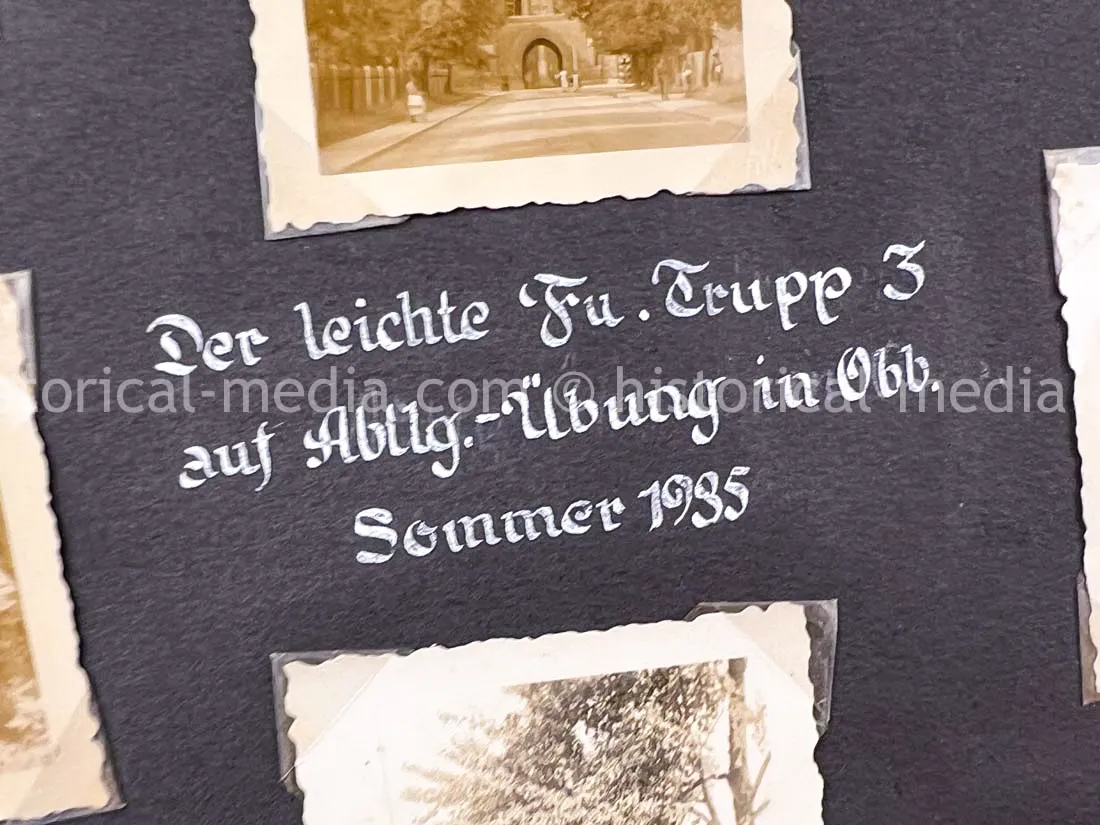 Der leichte Fu. Trupp 3
auf Abtlg.-Übung in Obb.
historical-media.com © historical-media.com
Sommer 1935